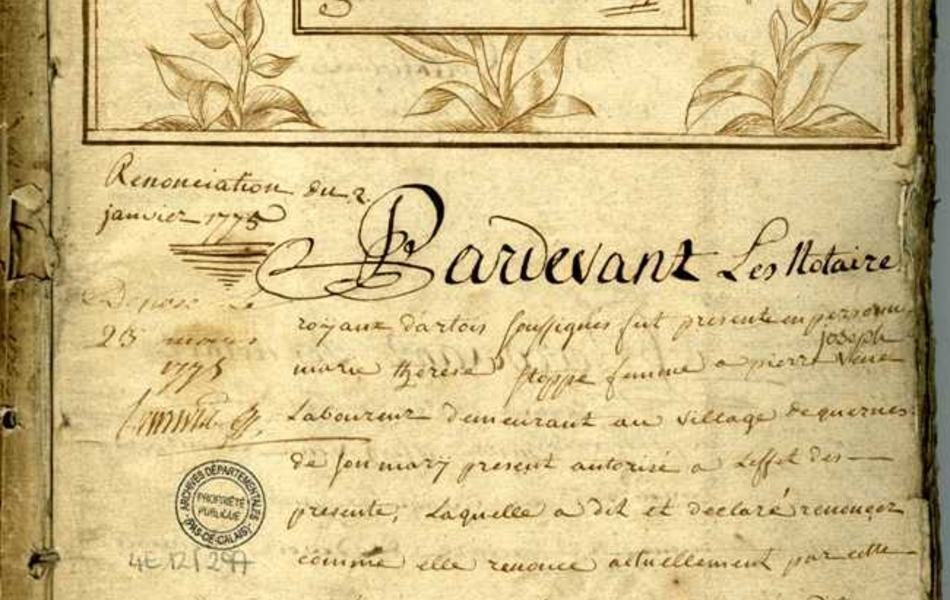 Renonciation du 2.
janvier 1775
Pardevant Les Notaire
Deposé Le
23 mars
1775
royaux dartois soussignés fut presente en personne
joseph
marie thérèse stoppe femme a pierre
Laboureur demeurant au village de quernes
de son mary present autorisé a Leffet des
presente, Laquelle a dit et declaré renoncer
comme elle renonce actuellement par cette
ARCHIVES DÉPARTEMENTALES
PROPRIÉTÉ
PUBLIQUE
(PAS-DE-CALAIS)
4E 12/297